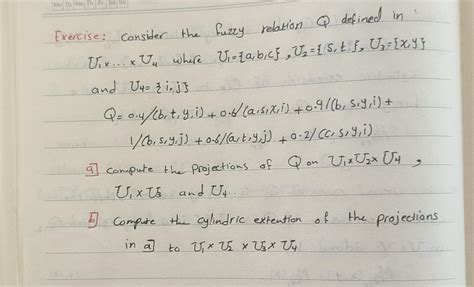 Mo Tu We Th Fr Sa Su
Exercise: Consider the fuzzy relation Q defined in
U₁x...xU₄ where U₁={a,b,c}, U₂={s,t}, U₂={x,y}
and U₄={i,j}
Q=0.4/(b,t,y,i)+0.6/(a,s,x,i)+0.9/(b,s,y,i)+
1/(b,s,y,j)+0.6/(a,t,y,j)+0.2/(c,s,y,i)
a] compute the projections of Q on U₁xU₂xU₄,
U₁xU₃ and U₄.
b] compute the cylindric extention of the projections
in a] to U₁xU₂xU₃xU₄